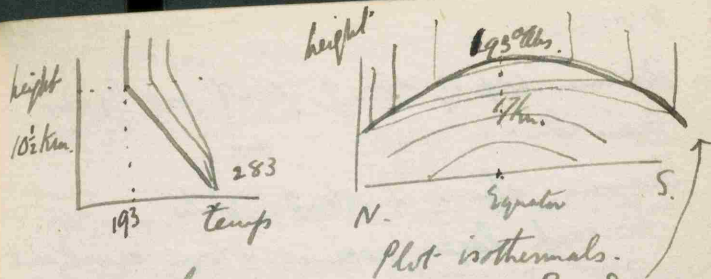 height
10½ Km.
193
283
temp
height
193° Abs.
17 km.
N.
Equator
S.
Plot isothermals.